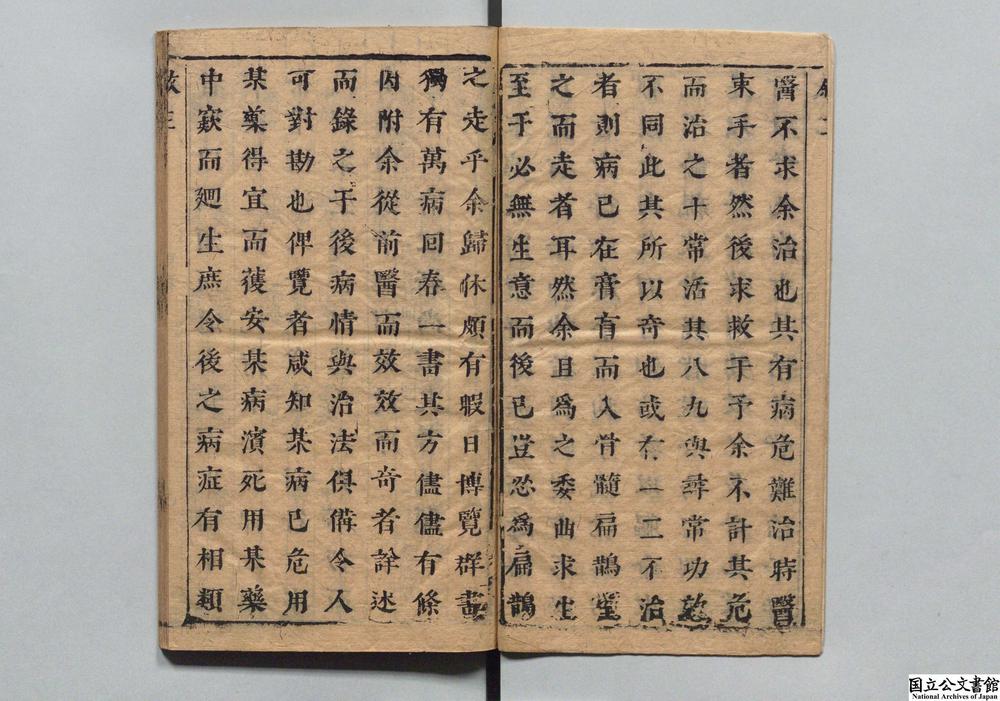 醫不求余治也其有病危難治時醫
束手者然後求救于予余不計其危
而治之十常活其八九與尋常功效
不同此其所以奇也或有一二不治
者則病已在膏肓而入骨髓扁鵲望
之而走者耳然余且為之委曲求生
至于必無生意而後已豈忍為扁鵲
之走乎余歸休頗有暇日博覽群書
獨有萬病回春一書其方儘儘有條
因附余從前醫而效效而奇者詳述
而錄之于後病情與治法俱備令人
可對勘也俾覽者咸知某病已危用
某藥得宜而獲安某病濱死用某藥
中窽而廻生庶令後之病症有相類
国立公文書館
National Archives of Japan